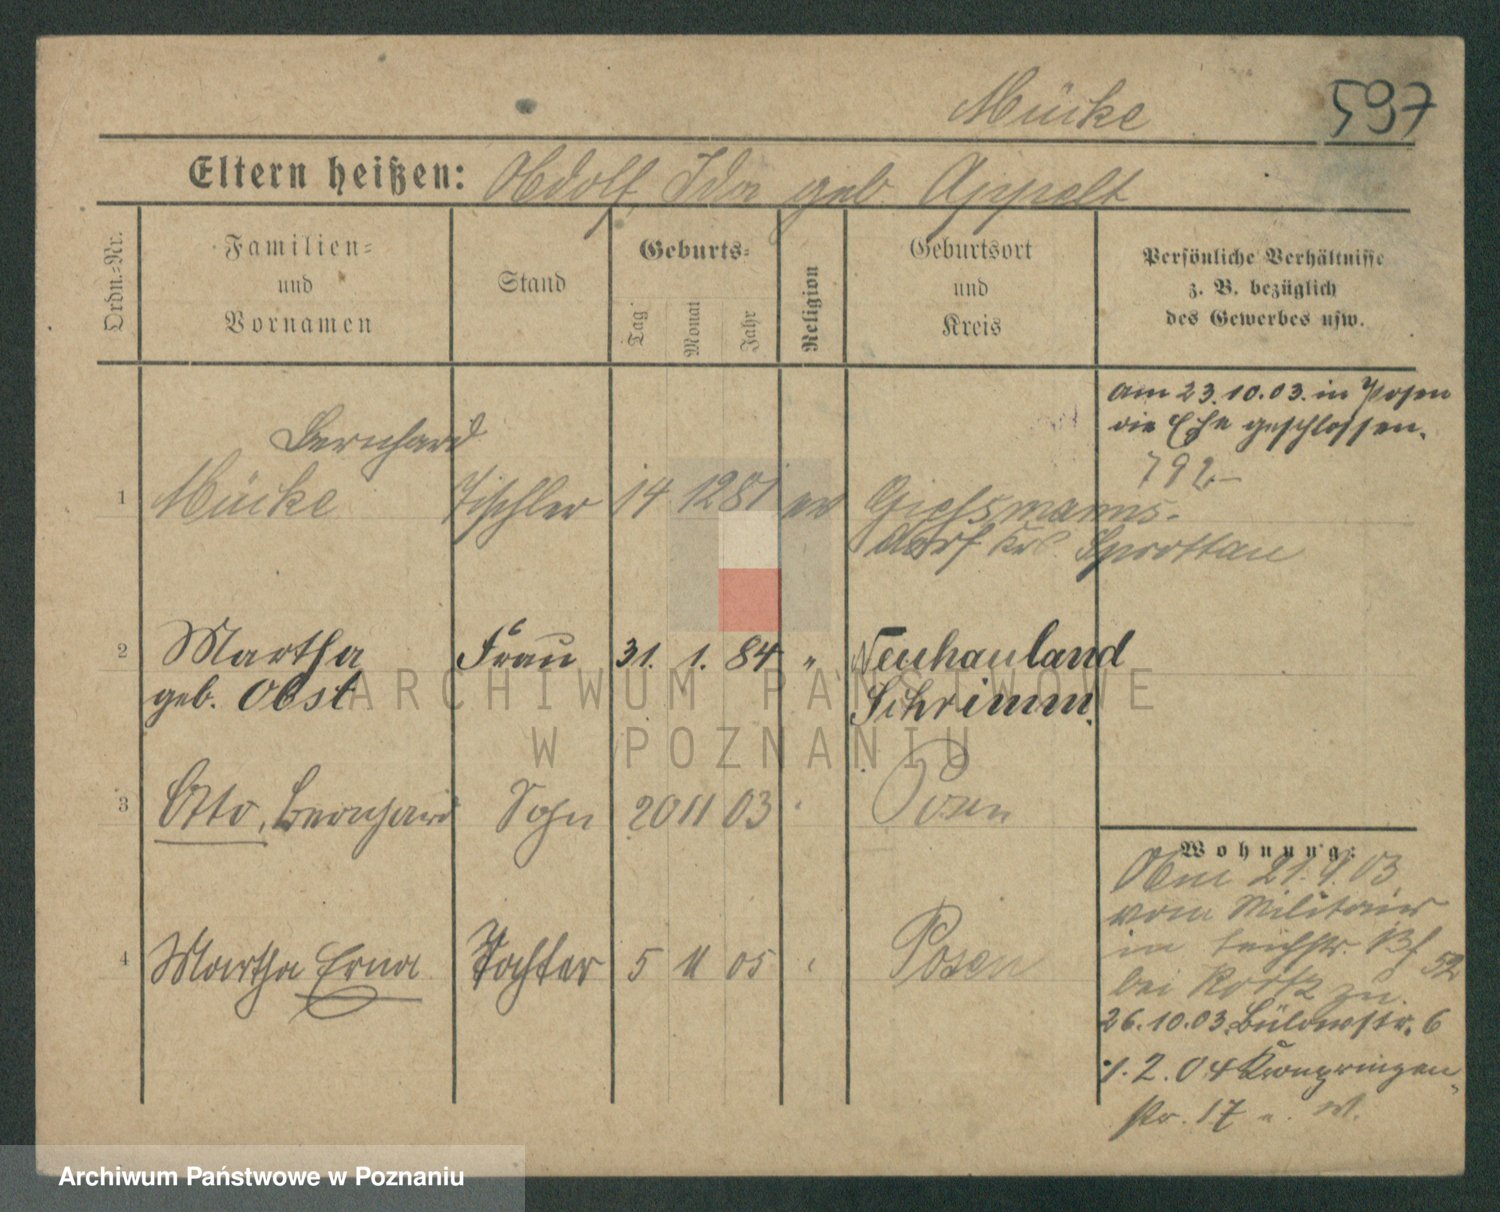 Mücke
597
Eltern heißen: Adolf, Ida geb. Appelt
Ordn.=Nr.
Familien=
und
Vornamen
Stand
Geburts=
Tag
Monat
Jahr
Religion
Geburtsort
und
Kreis
Persönliche Verhältnisse
z. B. bezüglich
des Gewerbes usw.
am 23.10.03. in Posen
die Ehe geschlossen.
792
Bernhard
1 Mücke Tischler 14 12 81 ev Giessmanns-
dorf Krs. Sprottau
2 Martha Frau 31. 1. 84 " Neuhauland
geb. Obst Schrimm.
3 Otto, Bernhard Sohn 20 11 03 " Posen
4 Martha Erna Tochter 5 11 05 " Posen
Wohnung:
21.9.03
vom Militair
in
bei zu.
26.10.03. Bülowstr. 6
1.2.04 Kronprinzen-
str. 17
ARCHIWUM PAŃSTWOWE
W POZNANIU
Archiwum Państwowe w Poznaniu